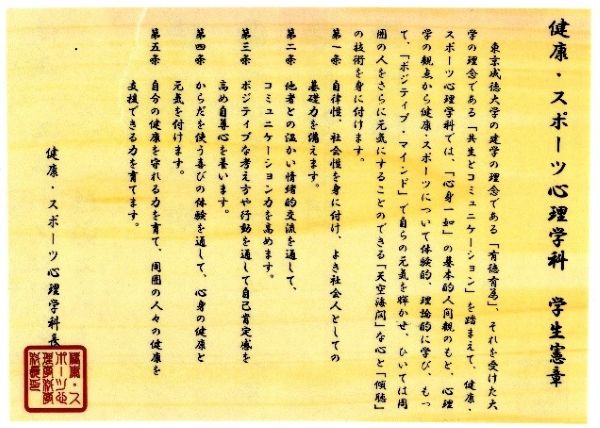 健康・スポーツ心理学科　学生憲章
東京成徳大学の建学の理念である「有徳有為」、それを受けた大
学の理念である「共生とコミュニケーション」を踏まえて、健康・
スポーツ心理学科では、「心身一如」の基本的人間観のもと、心理
学の観点から健康・スポーツについて体験的、理論的に学び、もっ
て、「ポジティブ・マインド」で自らの元気を輝かせ、ひいては周
囲の人をさらに元気にすることのできる「天空海闊」な心と「傾聴」
の技術を身に付けます。
第一条　自律性、社会性を身に付け、よき社会人としての
基礎力を備えます。
第二条　他者との温かい情緒的交流を通して、
コミュニケーション力を高めます。
第三条　ポジティブな考え方や行動を通して自己肯定感を
高め自尊心を養います。
第四条　からだを使う喜びの体験を通して、心身の健康と
元気を付けます。
第五条　自分の健康を守れる力を育て、周囲の人々の健康を
支援できる力を育てます。
健康・スポーツ心理学科長
健康・ス
ポーツ心
理学科学
科長之印